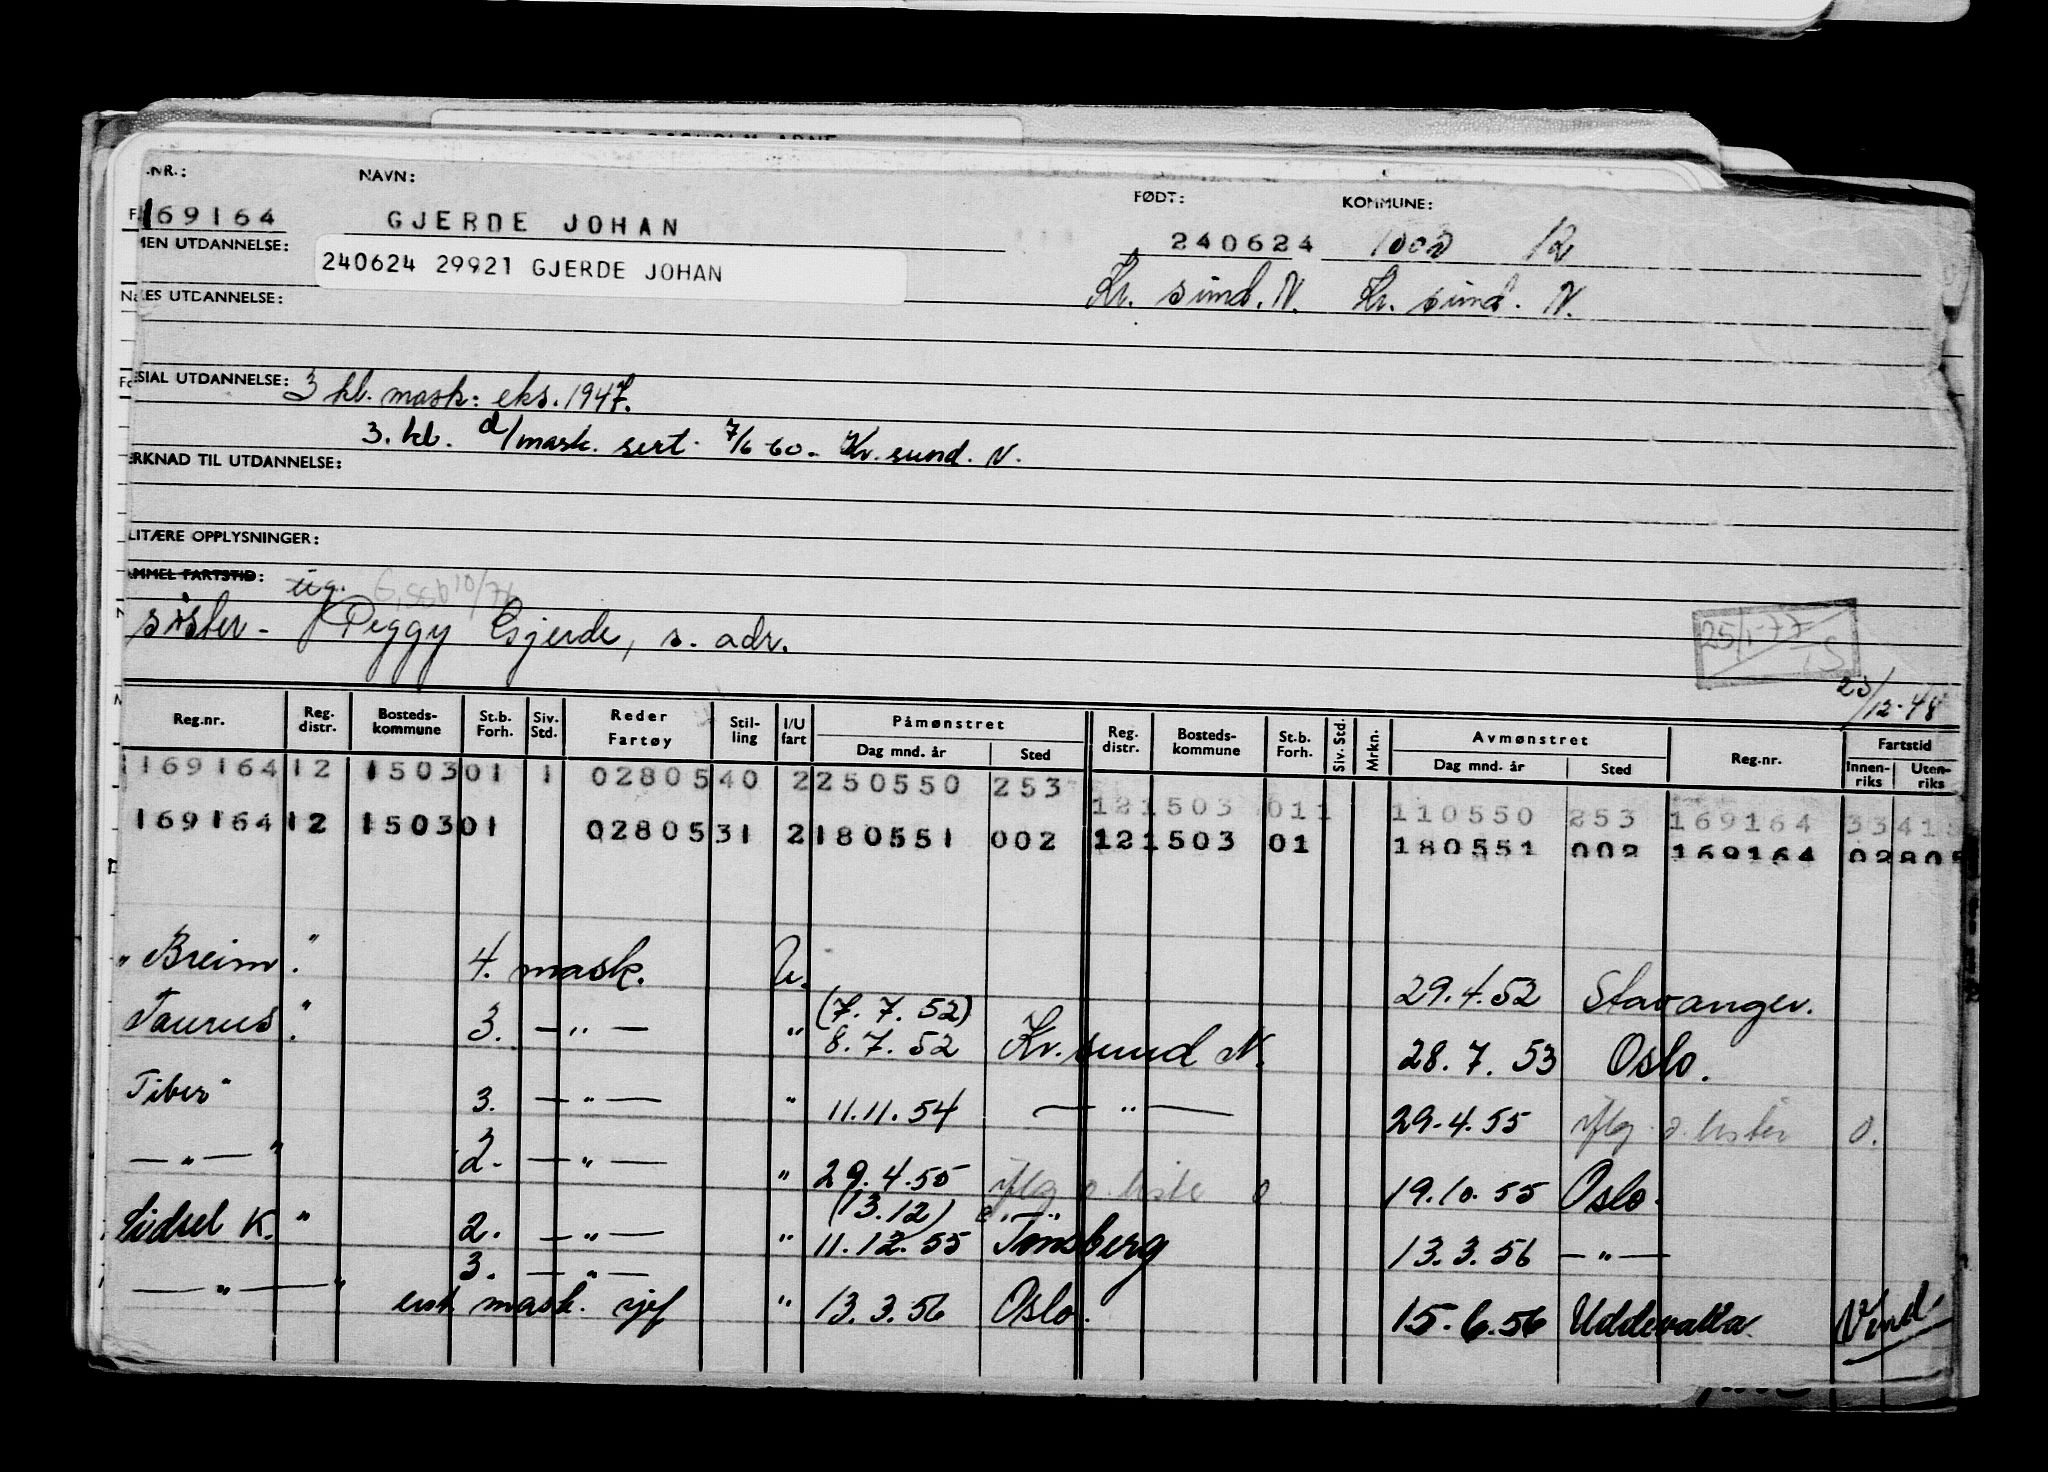 .NR.: NAVN: FØDT: KOMMUNE:
169164 GJERDE JOHAN 240624 1002 12
MEN UTDANNELSE: 240624 29921 GJERDE JOHAN Kr. sund. N. Kr. sund. N.
ES UTDANNELSE:
SIAL UTDANNELSE: 3 kl. mask: eks. 1947.
3. kl. d/mask. sert. 7/6 60. Kr. sund. N.
ERKNAD TIL UTDANNELSE:
LITÆRE OPPLYSNINGER:
AMMEL FARTSTID: ug.
søster - Peggy Gjerde, s. adr.
25/1-77
23/12-48
Reg.nr. Reg. distr. Bosteds-kommune St.b. Forh. Siv. Std. Reder Fartøy Stil-ling I/U fart Påmønstret Dag mnd. år Sted Reg. distr. Bosteds-kommune St.b. Forh. Siv. Std. Mrkn. Avmønstret Dag mnd. år Sted Reg.nr. Fartstid Innen-riks Uten-riks
169164 12 1503 01 1 02805 40 2 250550 253 12 1503 01 1 110550 253 169164 33 41
169164 12 1503 01 02805 31 2 180551 002 12 1503 01 180551 002 169164 02805
"Breim" 4. mask. U. 29.4.52 Stavanger.
Taurus" 3. —"— " (7.7.52) 8.7.52 Kr. sund N. 28.7.53 Oslo.
Tiber" 3. —"— " 11.11.54 —"— 29.4.55 iflg o. lister o.
—"—" 2. —"— " 29.4.55 iflg o. liste o 19.10.55 Oslo.
Sidsel K." 2. —"— " (13.12) 11.12.55 Tønsberg 13.3.56 —"—
3. —"—
—"—" mask. " 13.3.56 Oslo. 15.6.56 Uddevalla